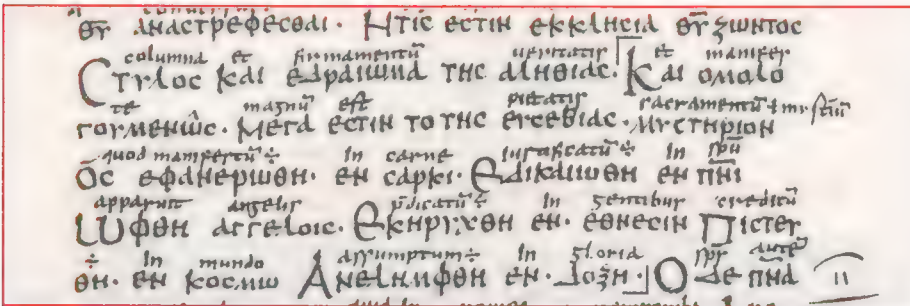 ΘΥ ΑΝΑСΤΡΕΦΕСΘΑΙ· ΗΤΙС ΕСΤΙΝ ΕΚΚΛΗСΙΑ ΘΥ ΖΩΝΤΟС
columna et firmamentū ueritatis et manifes
СΤΥΛΟС ΚΑΙ ΕΔΡΑΙΩΜΑ ΤΗС ΑΛΗΘΙΑС· ΚΑΙ ΟΜΟΛΟ
te magnū est pietatis sacramentū
ΓΟΥΜΕΝΩС· ΜΕΓΑ ΕСΤΙΝ ΤΟ ΤΗС ΕΥСΕΒΙΑС· ΜΥСΤΗΡΙΟΝ
quod manifestū ÷ in carne iustificatū ÷ in spū
ΟС ΕΦΑΝΕΡΩΘΗ· ΕΝ САΡΚΙ· ΕΔΙΚΑΙΩΘΗ ΕΝ ΠΝΙ
apparuit angelis p̄dicatū ÷ in gentibus creditū
ΩΦΘΗ ΑΓΓΕΛΟΙС· ΕΚΗΡΥΧΘΗ ΕΝ· ΕΘΝΕСΙΝ ΠΙСΤΕΥ
÷ in mundo assumptum ÷ in gloria sps autē
ΘΗ· ΕΝ ΚΟСΜΩ ΑΝΕΛΗΜΦΘΗ ΕΝ· ΔΟΞΗ· Ο ΔΕ ΠΝΑ